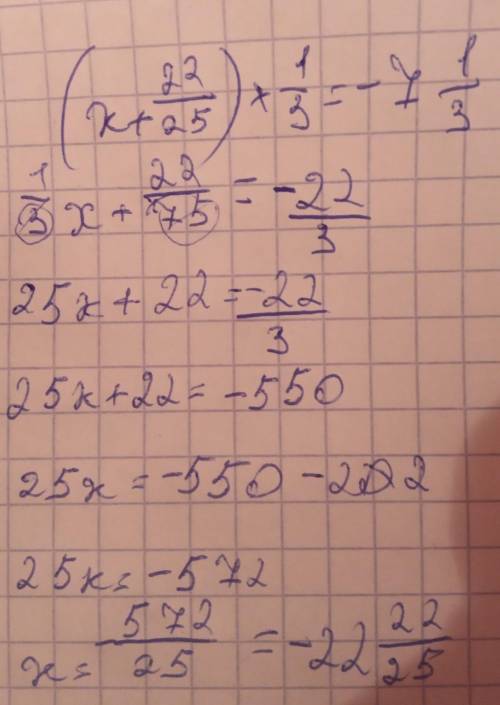 (x + 22/25) × 1/3 = -7 1/3
1/3 x + 22/75 = -22/3
25x + 22 = -22/3
25x + 22 = -550
25x = -550 - 22
25x = -572
x = -572/25 = -22 22/25